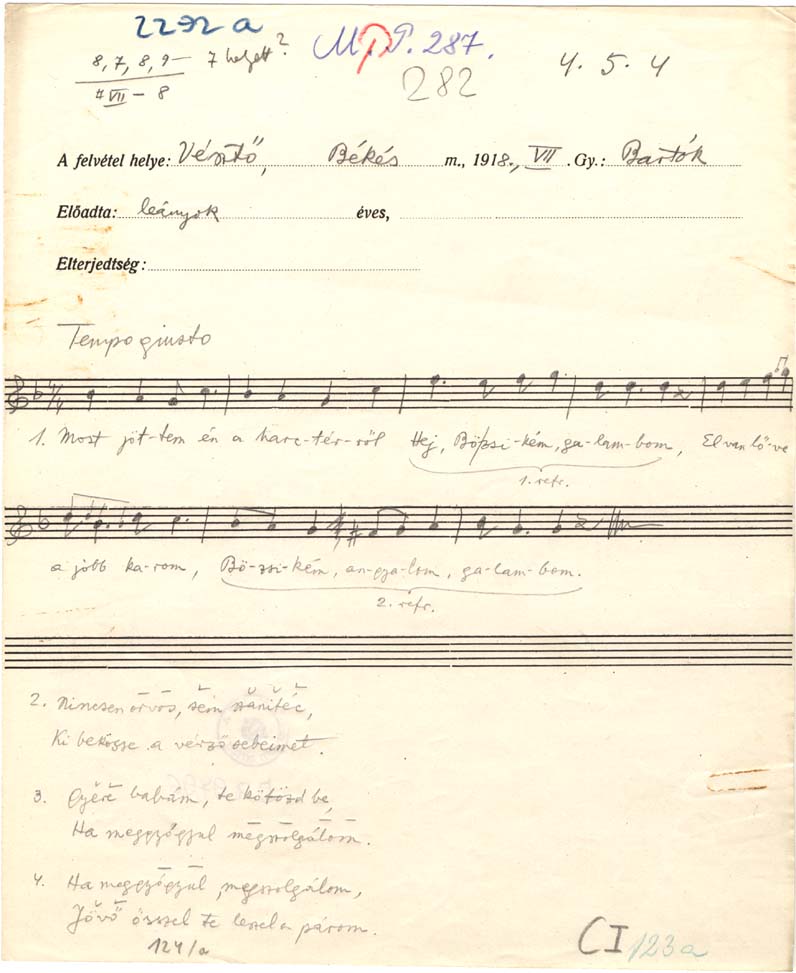 2292a
8, 7, 8, 9 – 7 helyett?
VII – 8
M.P. 287.
282
4. 5. 4
A felvétel helye: Vésztő, Békés m., 1918., VII . Gy.: Bartók
Előadta: leányok éves,
Elterjedtség:
Tempo giusto
1. Most jöt-tem én a harc-tér-ről Hej, Bözsi-kém, ga-lam-bom, El van lő-ve
1. refr.
a jobb ka-rom, Bö-zsi-kém, an-gya-lom, ga-lam-bom.
2. refr.
2. Nincsen orvos, sem szanitéc,
Ki bekösse a vérző sebeimet.
3. Gyere babám, te kötözd be,
Ha meggyógyul megszolgálom.
4. Ha meggyógyul, megszolgálom,
Jövő ősszel te leszel a párom.
124/a
CI 123a